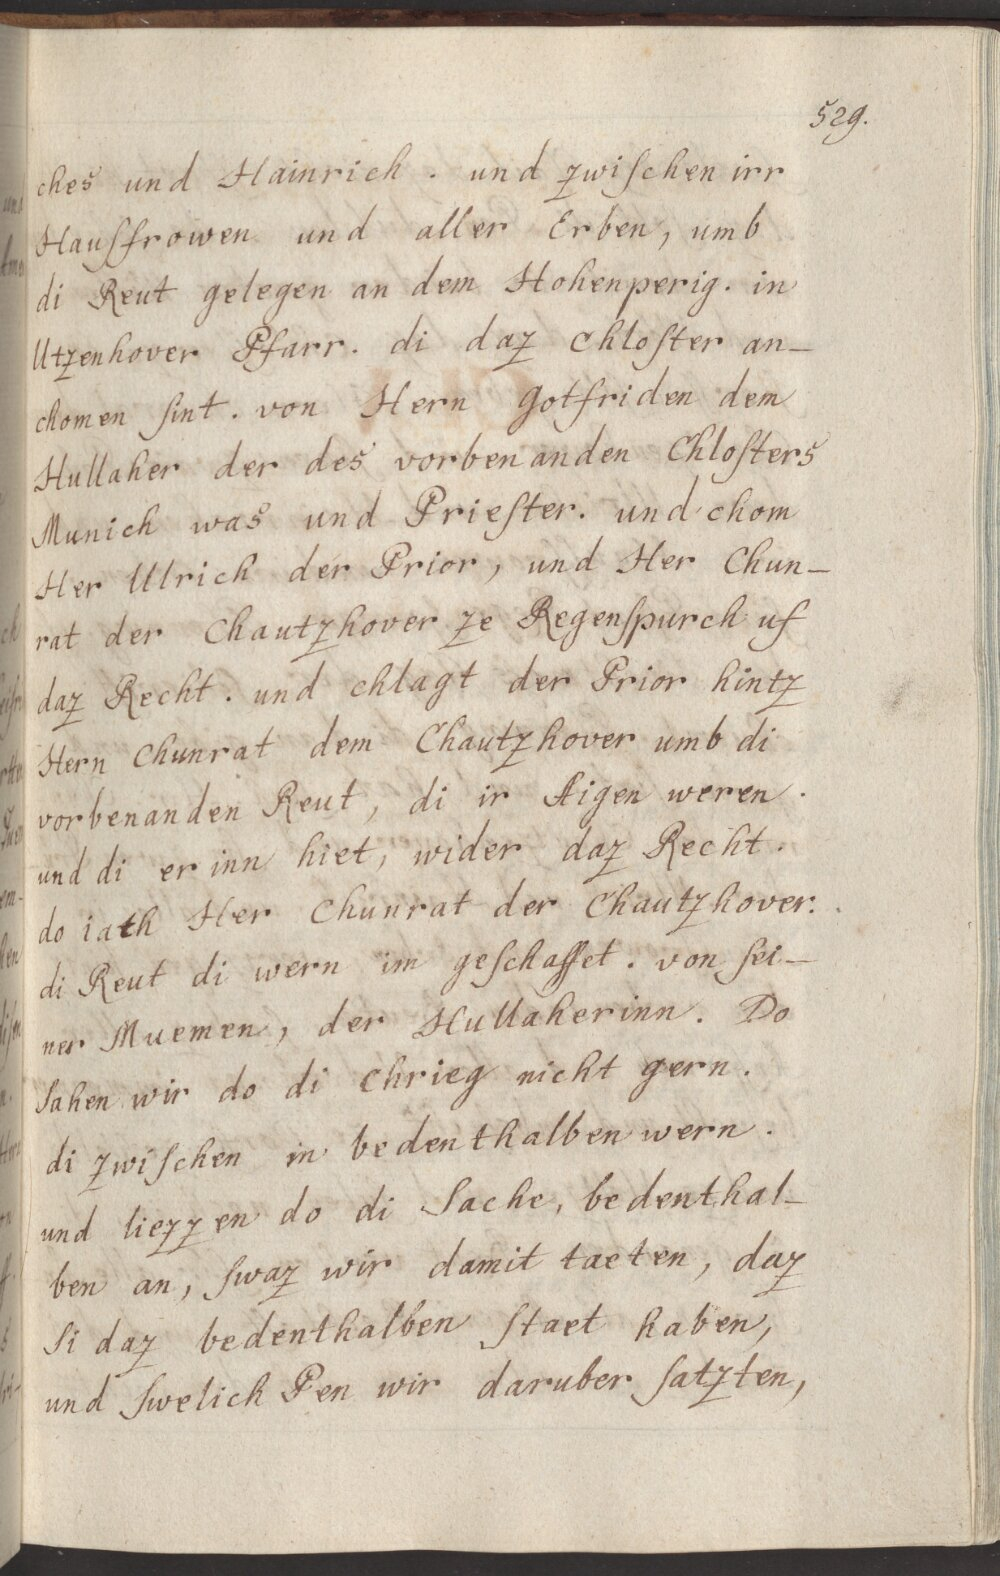 529.
ches und Hainrich . und zwiſchen irr
Hauſfrowen und aller Erben, umb
di Reut gelegen an dem Hohenperig. in
Utzenhover Pfarr. di daz Chloſter an–
chomen ſint. von Hern Gotfriden dem
Hullaher der des vorbenanden Chloſters
Munich was und Prieſter. und chom
Her Ulrich der Prior, und Her Chun–
rat der Chautzhover ze Regenſpurch uf
daz Recht. und chlagt der Prior hintz
Hern Chunrat dem Chautzhover umb di
vorbenanden Reut, di ir Aigen weren.
und di er inn hiet, wider daz Recht.
do iath Her Chunrat der Chautzhover.
di Reut di wern im geſchaffet. von ſei–
ner Muemen, der Hullakerinn. Do
ſahen wir do di Chrieg nicht gern.
di zwiſchen in bedenthalben wern.
und liezzen do di Sache, bedenthal–
ben an, ſwaz wir damit taeten, daz
ſi daz bedenthalben ſtaet haben,
und ſwelich Pen wir daruber ſatzten,